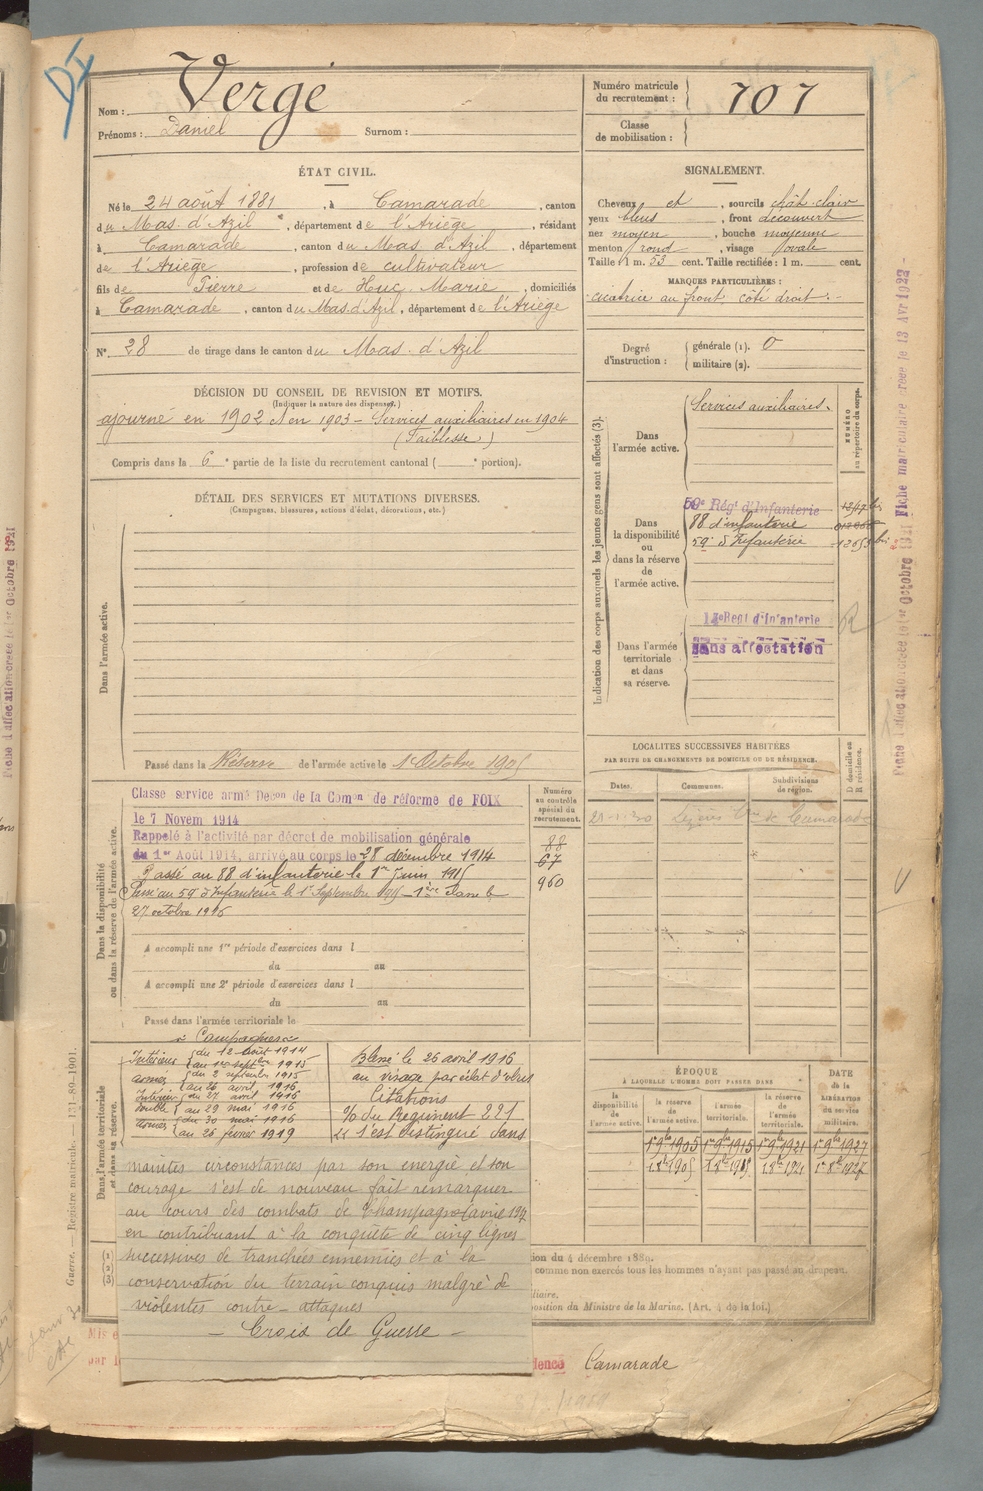 Vergé
Nom :
Prénoms : Daniel Surnom :
Numéro matricule
du recrutement : 707
Classe
de mobilisation :
ÉTAT CIVIL.
Né le 24 août 1881, à Camarade, canton
du Mas d'Azil, département de l'Ariège, résidant
à Camarade, canton du Mas d'Azil, département
de l'Ariège, profession de cultivateur
fils de Pierre et de Huc Marie, domiciliés
à Camarade, canton du Mas d'Azil, département de l'Ariège
N° 28 de tirage dans le canton du Mas d'Azil
SIGNALEMENT.
Cheveux et, sourcils chât-clair
yeux bleus, front découvert
nez moyen, bouche moyenne
menton rond, visage ovale
Taille : 1 m. 53 cent. Taille rectifiée : 1 m. cent.
MARQUES PARTICULIÈRES :
cicatrice au front côté droit.
Degré
d'instruction :
générale (1). 0
militaire (2).
DÉCISION DU CONSEIL DE REVISION ET MOTIFS.
(Indiquer la nature des dispenses.)
ajourné en 1902 et en 1903 – Services auxiliaires en 1904
(Faiblesse)
Compris dans la 6e partie de la liste du recrutement cantonal ( e portion).
DÉTAIL DES SERVICES ET MUTATIONS DIVERSES.
(Campagnes, blessures, actions d'éclat, décorations, etc.)
Dans l'armée active.
Passé dans la Réserve de l'armée active le 1 Octobre 1905
Indication des corps auxquels les jeunes gens sont affectés (3).
NUMÉRO
au répertoire du corps.
Dans
l'armée active.
Services auxiliaires.
Dans
la disponibilité
ou
dans la réserve
de
l'armée active.
59e Régt d'Infanterie
88 d'infanterie
59e d'Infanterie
Dans l'armée
territoriale
et dans
sa réserve.
Regt d'Infanterie
Sans affectation
LOCALITÉS SUCCESSIVES HABITÉES
PAR SUITE DE CHANGEMENTS DE DOMICILE OU DE RÉSIDENCE.
Dates.
Communes.
Subdivisions
de région.
D domicile ou
R résidence.
de Camarade
Dans la disponibilité
ou dans la réserve de l'armée active.
Classe service armé Decon de la Comon de réforme de FOIX
le 7 Novem 1914
Rappelé à l'activité par décret de mobilisation générale
du 1er Août 1914, arrivé au corps le 28 décembre 1914
Passé au 88 d'infanterie le 1er Juin 1915
Passé au 59 d'Infanterie le 1er Septembre 1915
27 octobre 1916
Numéro
au contrôle
spécial du
recrutement.
88
67
960
A accompli une 1re période d'exercices dans l
du au
A accompli une 2e période d'exercices dans l
du au
Passé dans l'armée territoriale le
Dans l'armée territoriale
et dans sa réserve.
Campagnes
Intérieur du 12 août 1914
au 1er septbre 1915
armées du 2 septembre 1915
au 26 avril 1916
Intérieur du 27 avril 1916
double au 29 mai 1916
armées du 30 mai 1916
au 26 février 1919
Blessé le 26 avril 1916
au visage par éclat d'obus
Citations
O/ du Régiment 221
s'est distingué dans
maintes circonstances par son energie et son
courage s'est de nouveau fait remarquer
au cours des combats de Champagne (avril 1917
en contribuant à la conquête de cinq lignes
successives de tranchées ennemies et à la
conservation du terrain conquis malgré de
violentes contre-attaques
– Croix de Guerre –
ÉPOQUE
À LAQUELLE L'HOMME DOIT PASSER DANS
la
disponibilité
de
l'armée active.
la réserve
de
l'armée active.
l'armée
territoriale.
la réserve
de
l'armée
territoriale.
DATE
de la
LIBÉRATION
du service
militaire.
1er 9bre 1905 1er 9bre 1915 1er 9bre 1921 1er 9bre 1927
ion du 4 décembre 1889.
comme non exercés tous les hommes n'ayant pas passé au drapeau.
iliaire.
position du Ministre de la Marine. (Art. 4 de la loi.)
Mis e
par l
dence Camarade
Guerre. — Registre matricule. — 131-89-1901.
Fiche d'affectation créée le 1er Octobre 1921 Fiche matriculaire créée le 13 Avr 1922 -
Fiche d'affectation créée le 1er Octobre 1921